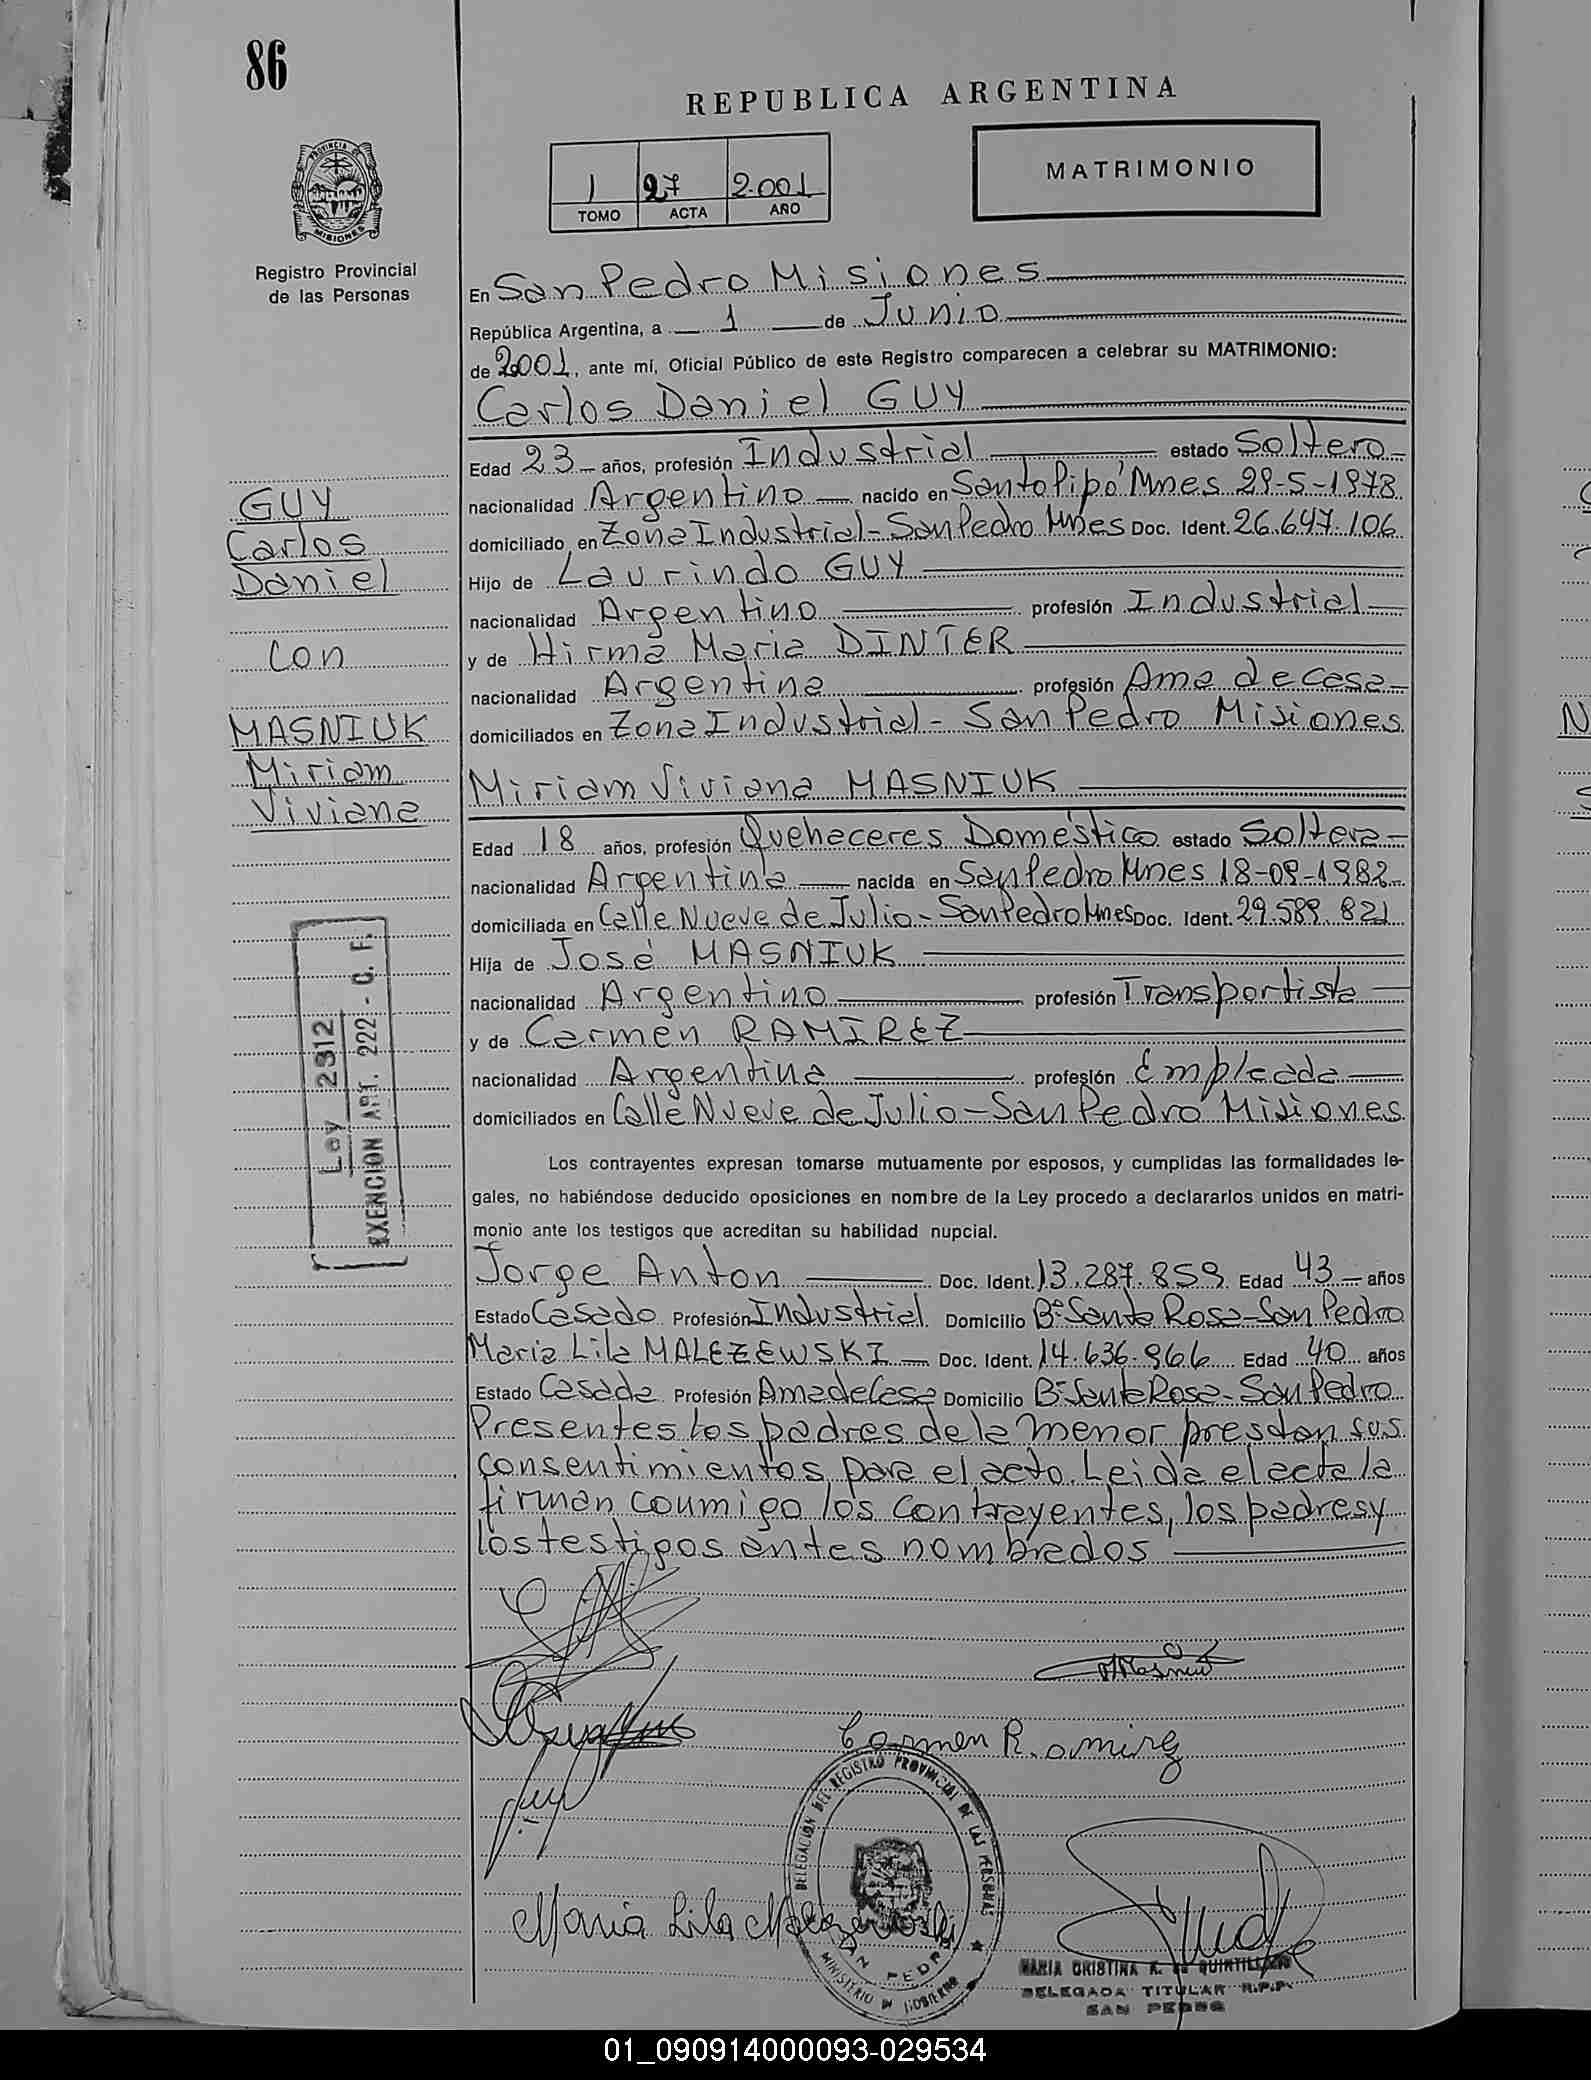 86
REPUBLICA ARGENTINA
MATRIMONIO
1 27 2.001
TOMO ACTA AÑO
PROVINCIA DE
MISIONES
Registro Provincial
de las Personas
En San Pedro Misiones
República Argentina, a 1 de Junio
de 2.001, ante mí, Oficial Público de este Registro comparecen a celebrar su MATRIMONIO:
Carlos Daniel GUY
Edad 23 años, profesión Industrial estado Soltero
nacionalidad Argentino nacido en Santo Pipó Mnes 29-5-1978
domiciliado en Zona Industrial - San Pedro Mnes Doc. Ident. 26.647.106
Hijo de Laurindo GUY
nacionalidad Argentino profesión Industrial
y de Hirma Maria DINTER
nacionalidad Argentina profesión Ama de casa
domiciliados en Zona Industrial - San Pedro Misiones
GUY
Carlos
Daniel
con
MASNIUK
Miriam
Viviana
Miriam Viviana MASNIUK
Edad 18 años, profesión Quehaceres Doméstico estado Soltera
nacionalidad Argentina nacida en San Pedro Mnes 18-09-1982
domiciliada en Calle Nueve de Julio - San Pedro Mnes Doc. Ident. 29.589.821
Hija de José MASNIUK
nacionalidad Argentino profesión Transportista
y de Carmen RAMIREZ
nacionalidad Argentina profesión Empleada
domiciliados en Calle Nueve de Julio - San Pedro Misiones
Ley 2312
EXENCION ART. 222 - C. F.
Los contrayentes expresan tomarse mutuamente por esposos, y cumplidas las formalidades le-
gales, no habiéndose deducido oposiciones en nombre de la Ley procedo a declararlos unidos en matri-
monio ante los testigos que acreditan su habilidad nupcial.
Jorge Anton Doc. Ident. 13.287.859 Edad 43 años
Estado Casado Profesión Industrial Domicilio Bº Santa Rosa - San Pedro
Maria Lila MALEZEWSKI Doc. Ident. 14.636.966 Edad 40 años
Estado Casada Profesión Ama de Casa Domicilio Bº Santa Rosa - San Pedro
Presentes los padres de la menor prestan sus
consentimientos para el acto. Leida el acta la
firman conmigo los contrayentes, los padres y
los testigos antes nombrados
Carmen R. amirez
Maria Lila Malezewski
DELEGACION DEL REGISTRO PROVINCIAL DE LAS PERSONAS
SAN PEDRO
MINISTERIO DE GOBIERNO
MARIA CRISTINA
DELEGADA TITULAR R.P.P.
SAN PEDRO
01_090914000093-029534